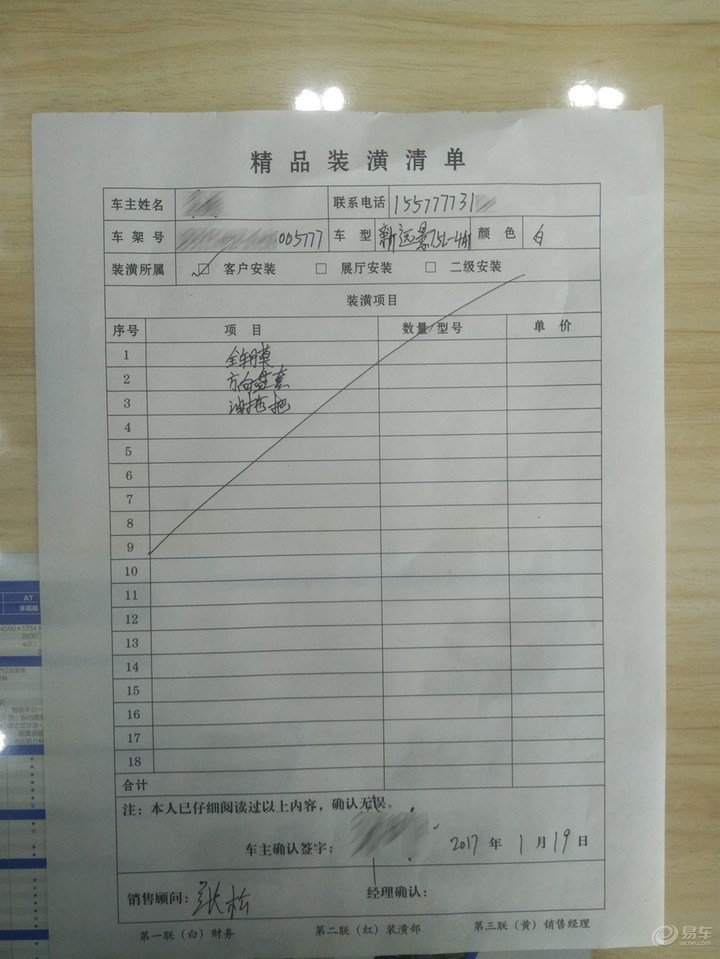 精品装潢清单
车主姓名 联系电话 155777731
车架号 005777 车型 新远景 颜色 白
装潢所属 客户安装 展厅安装 二级安装
装潢项目
序号 项目 数量/型号 单价
1 全车膜
2 方向盘套
3
4
5
6
7
8
9
10
11
12
13
14
15
16
17
18
合计
注：本人已仔细阅读过以上内容，确认无误。
车主确认签字： 2017 年 1 月 19 日
销售顾问：张松 经理确认：
第一联（白）财务 第二联（红）装潢部 第三联（黄）销售经理
易车